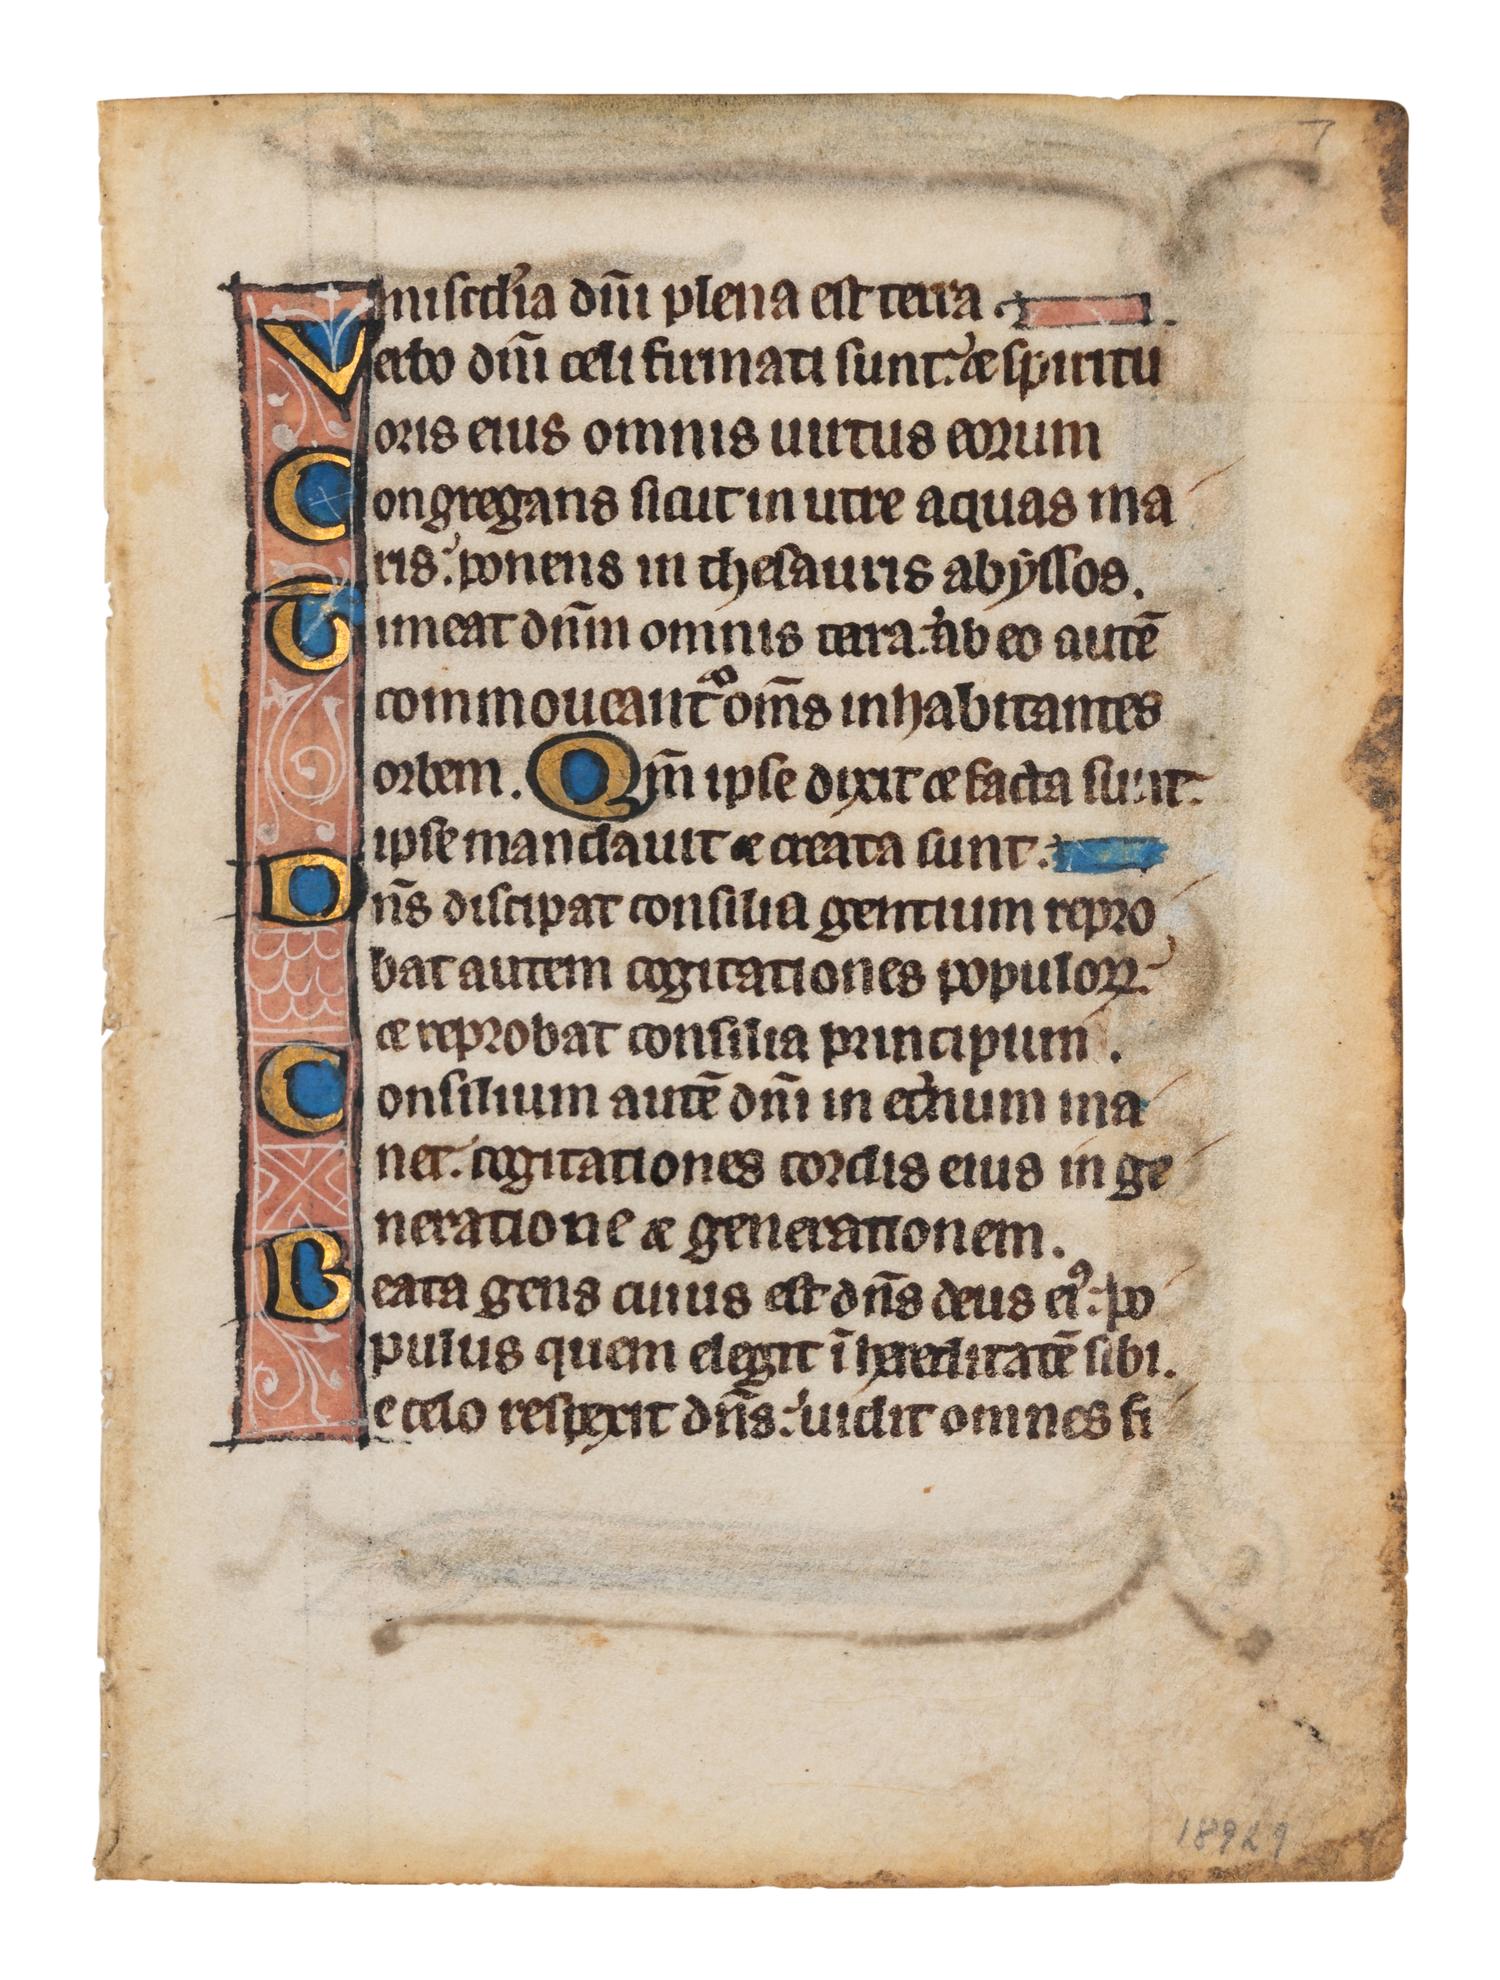 miscd'ia dñi plena est terra.
Verbo dñi celi firmati sunt: & spiritu
oris eius omnis uirtus eorum
Congregans sicut in utre aquas ma
ris: ponens in thesauris abyssos.
Timeat dñm omnis terra: ab eo autē
commoueantᷣ om̄s inhabitantes
orbem. Qm̄ ipse dixit & facta sunt:
ipse mandauit & creata sunt.
Dñs discipat consilia gentium repro
bat autem cogitationes populoꝝ:
& reprobat consilia principum.
Consilium autē dñi in et'num ma
net: cogitationes cordis eius in ge
neratione & generationem.
Beata gens cuius est dñs deus ei⁹: po
pulus quem elegit ī hereditatē sibi.
e celo respexit dñs: uidit omnes fi
18929